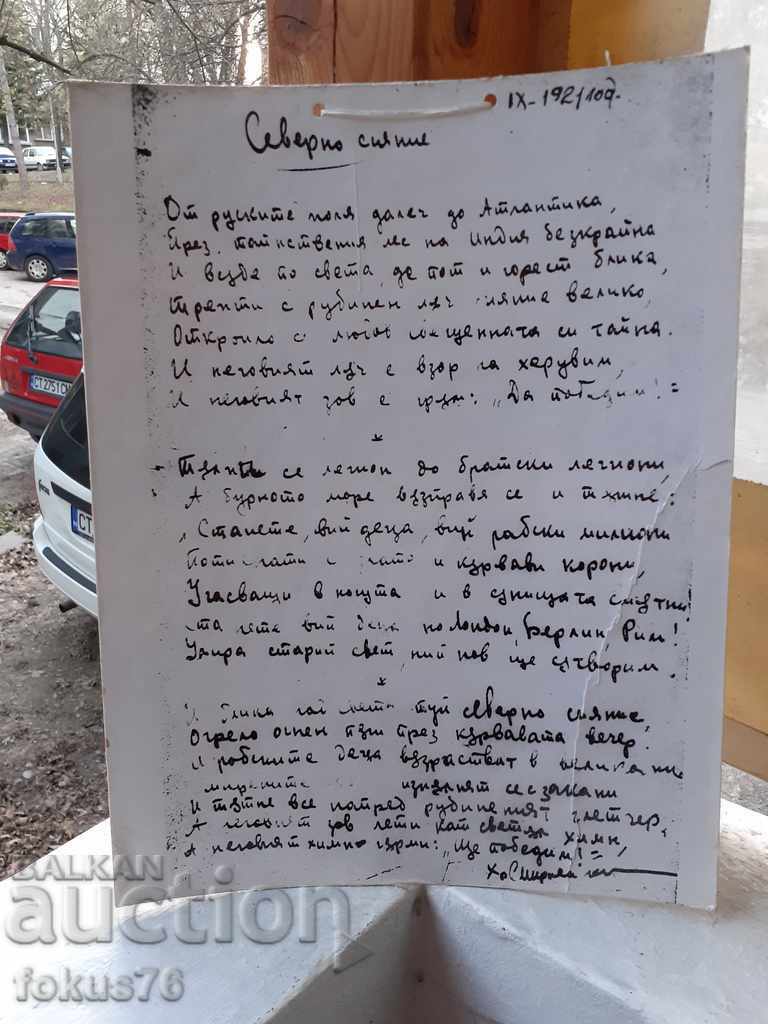 Северно сияние
IX-1921 год.
От руските поля далеч до Атлантика,
През тайнствения лес на Индия безкрайна
И везде по света, де пот и горест блика,
Трепти с рубинен лъч сияние велико,
Открило с любов свещенната си тайна.
И неговият лъч е взор на херувим,
И неговият зов е гръм: „Да победим!"
*
се легион до братски легиони,
А бурното море възправя се и
„Станете, вий деца, вий робски милиони
и кървави корони,
Угасващи в нощта и в сутни!
вий деца на Лондон, Берлин, Рим!
Умира старий свет, ний нов ще сътворим.
*
туй северно сияние
Огрело огнен път през кървавата вечер.
И робските деца възрастват в великани
се закани
И тътне все напред рубиненият
А неговият зов лети кат химн,
А неговият химн гърми: „Ще победим!"
Хр. Смирнен
CT 2751 CH
CT
BALKAN
auction
fokus76